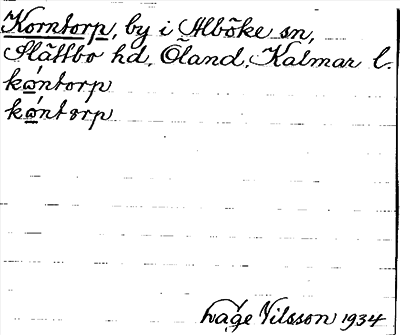 Korntorp, by i Alböke sn,
Slättbo hd, Öland, Kalmar l.
kóntorp
kóntorp
Nilsson 1934